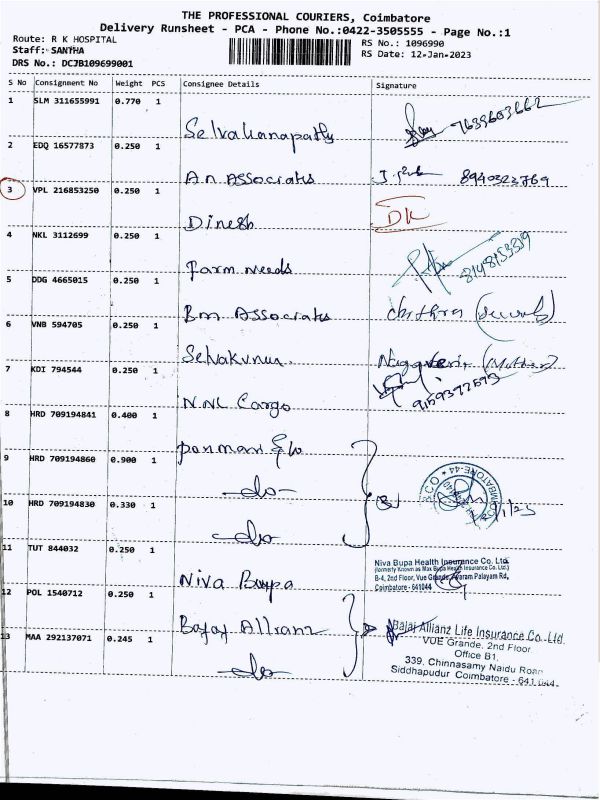 THE PROFESSIONAL COURIERS, Coimbatore
Delivery Runsheet - PCA - Phone No.:0422-3505555 - Page No.:1
Route: R K HOSPITAL
RS No.: 1096990
Staff: SANTHA
RS Date: 12-Jan-2023
DRS No.: DCJB109699001
S No Consignment No Weight PCS Consignee Details Signature
1 SLM 311655991 0.770 1
Selvakanapathy 7639603662
2 EDQ 16577873 0.250 1
An Associates 8940323769
3 VPL 216853250 0.250 1
Dinesh DK
4 NKL 3112699 0.250 1
Farm needs
5 DDG 4665015 0.250 1
Bm Associates chithra
6 VNB 594705 0.250 1
Selvakumar (Mother)
7 KDI 794544 0.250 1
NNL Cargo 9159377593
8 HRD 709194841 0.400 1
9 HRD 709194860 0.900 1
-do-
COIMBATORE-44
10 HRD 709194830 0.330 1
-do-
11 TUT 844032 0.250 1
Niva Bupa
Niva Bupa Health Insurance Co. Ltd.
(formerly Known as Max Bupa Health Insurance Co. Ltd.)
B-4, 2nd Floor, Vue Grande, Avaram Palayam Rd,
Coimbatore - 641044
12 POL 1540712 0.250 1
Bajaj Allianz
13 MAA 292137071 0.245 1
-do-
Bajaj Allianz Life Insurance Co. Ltd.
VUE Grande, 2nd Floor
Office B1,
339, Chinnasamy Naidu Road
Siddhapudur Coimbatore - 641 044.